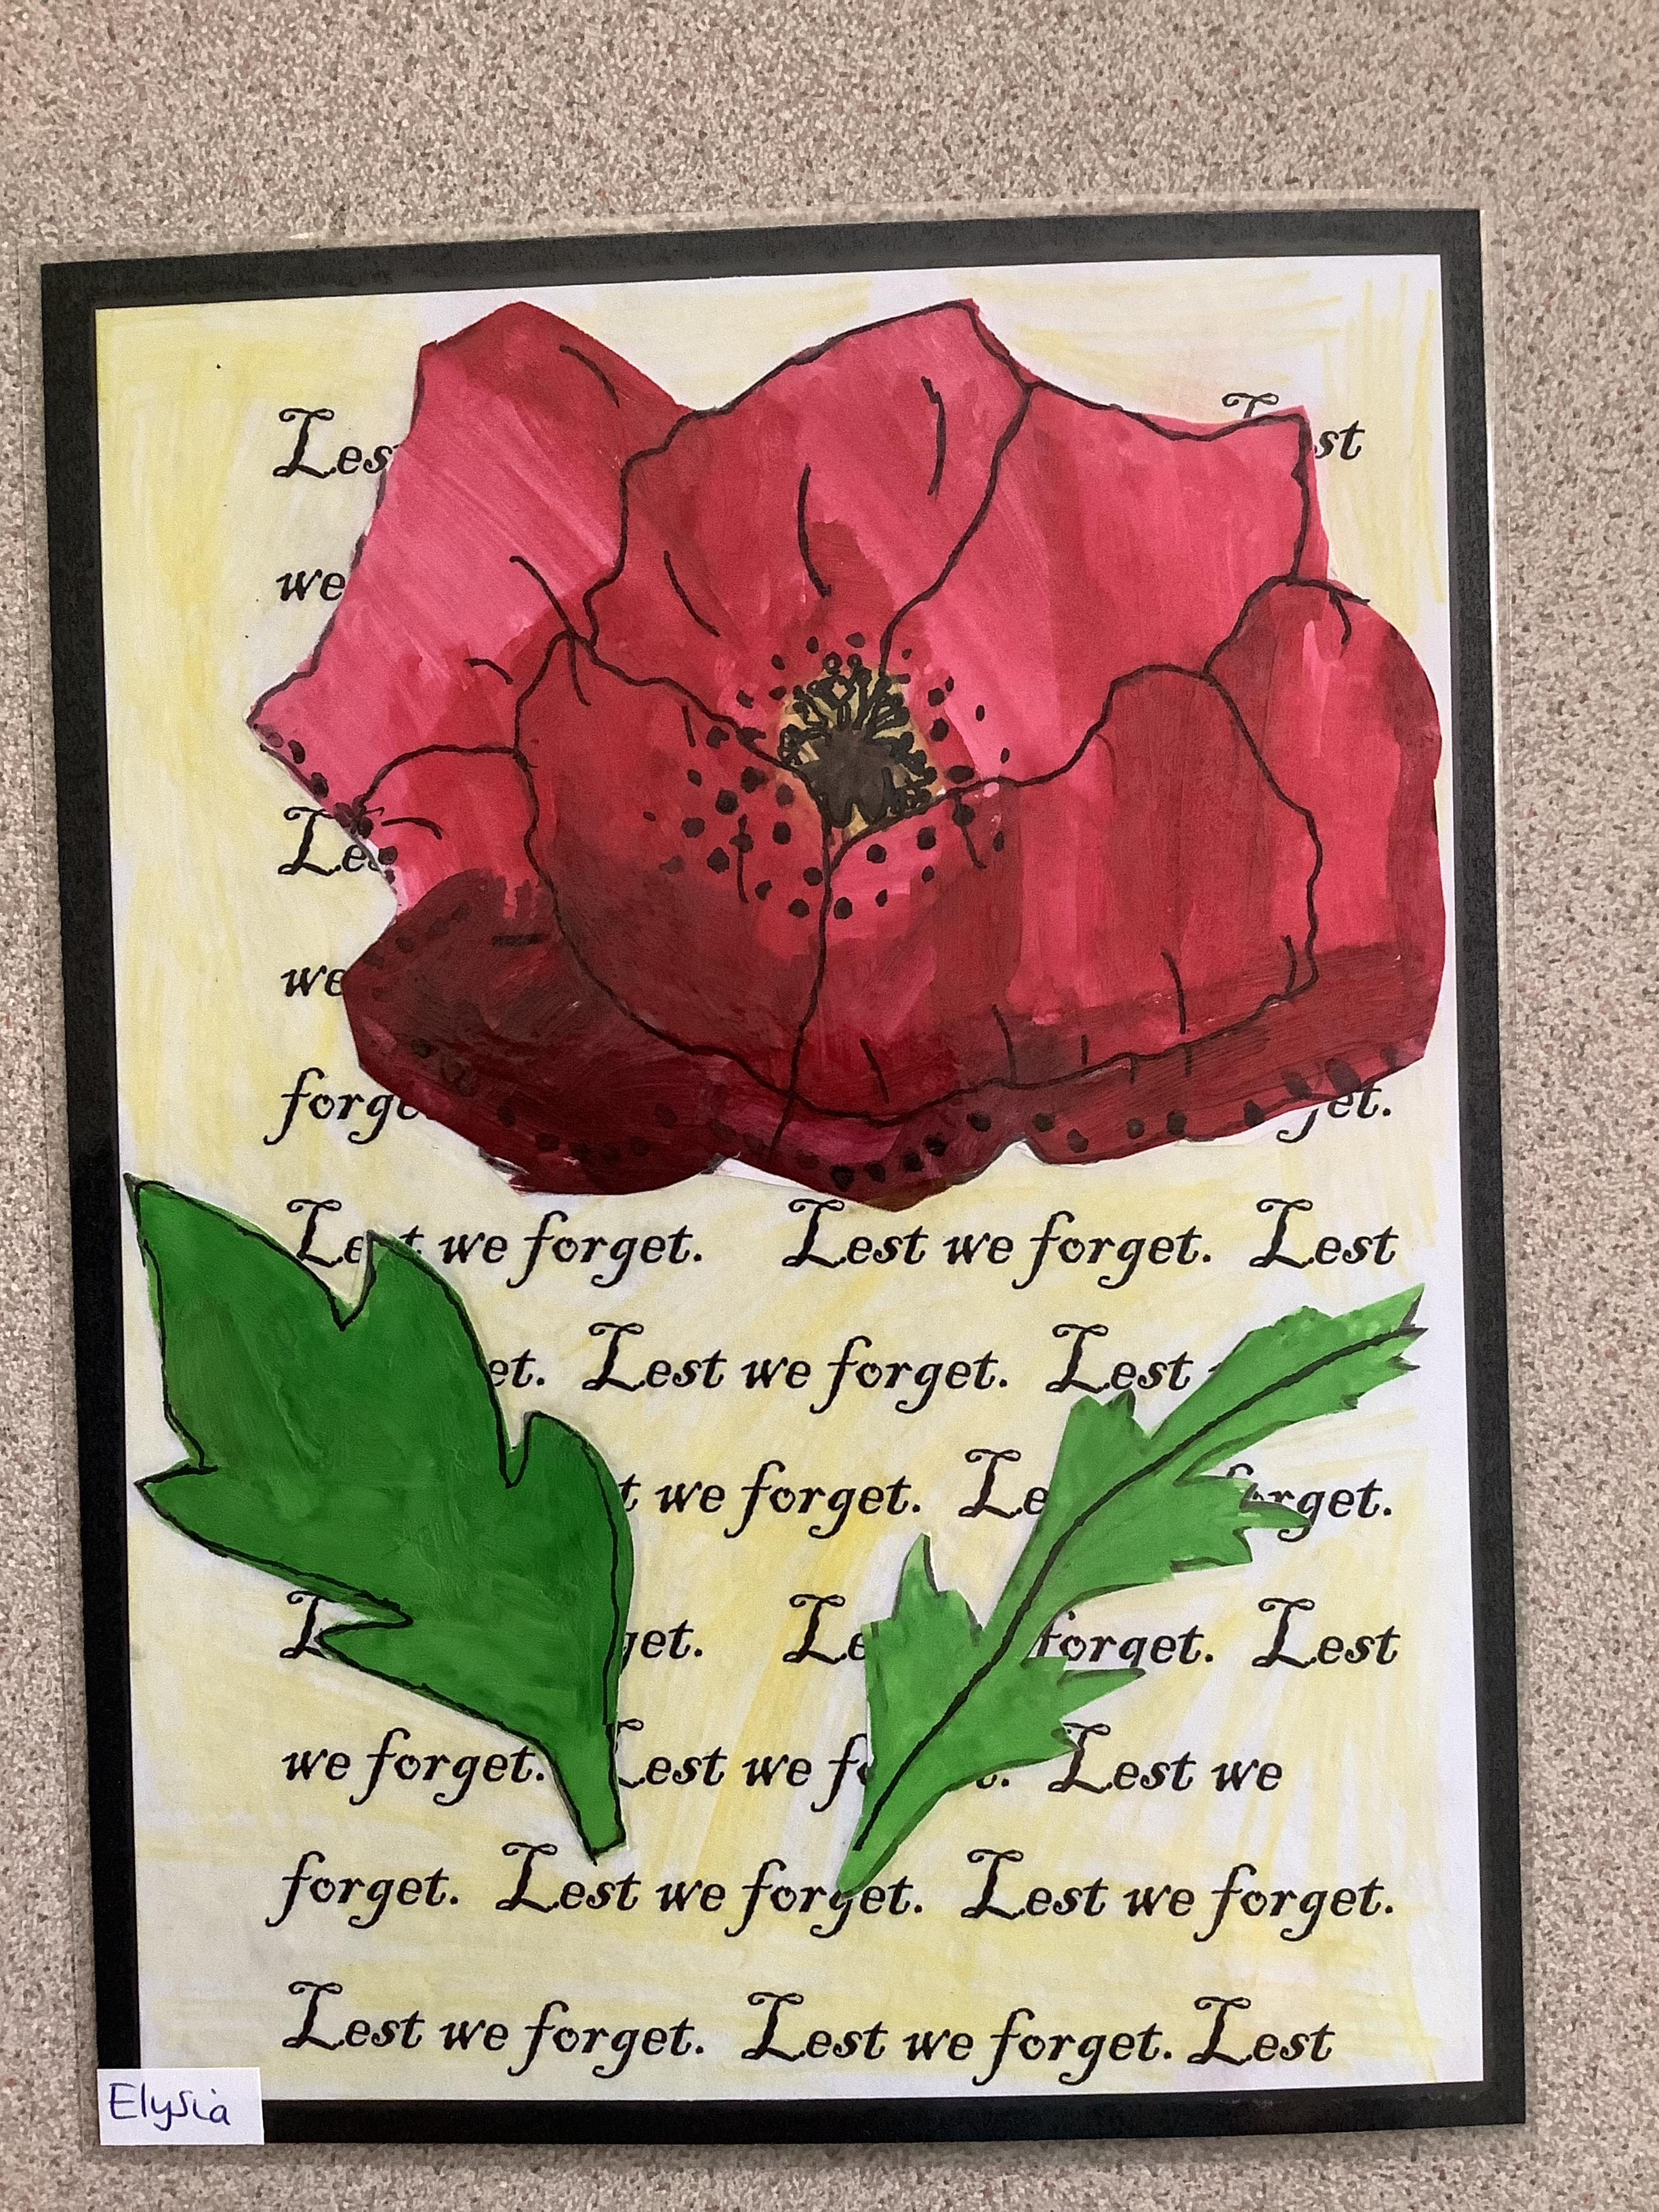 Lest
we
we
Lest we forget. Lest
Lest we forget. Lest
we forget. forget.
forget. Lest
we forget. Lest we Lest we
forget. Lest we forget. Lest we forget.
Lest we forget. Lest we forget. Lest
Elysia